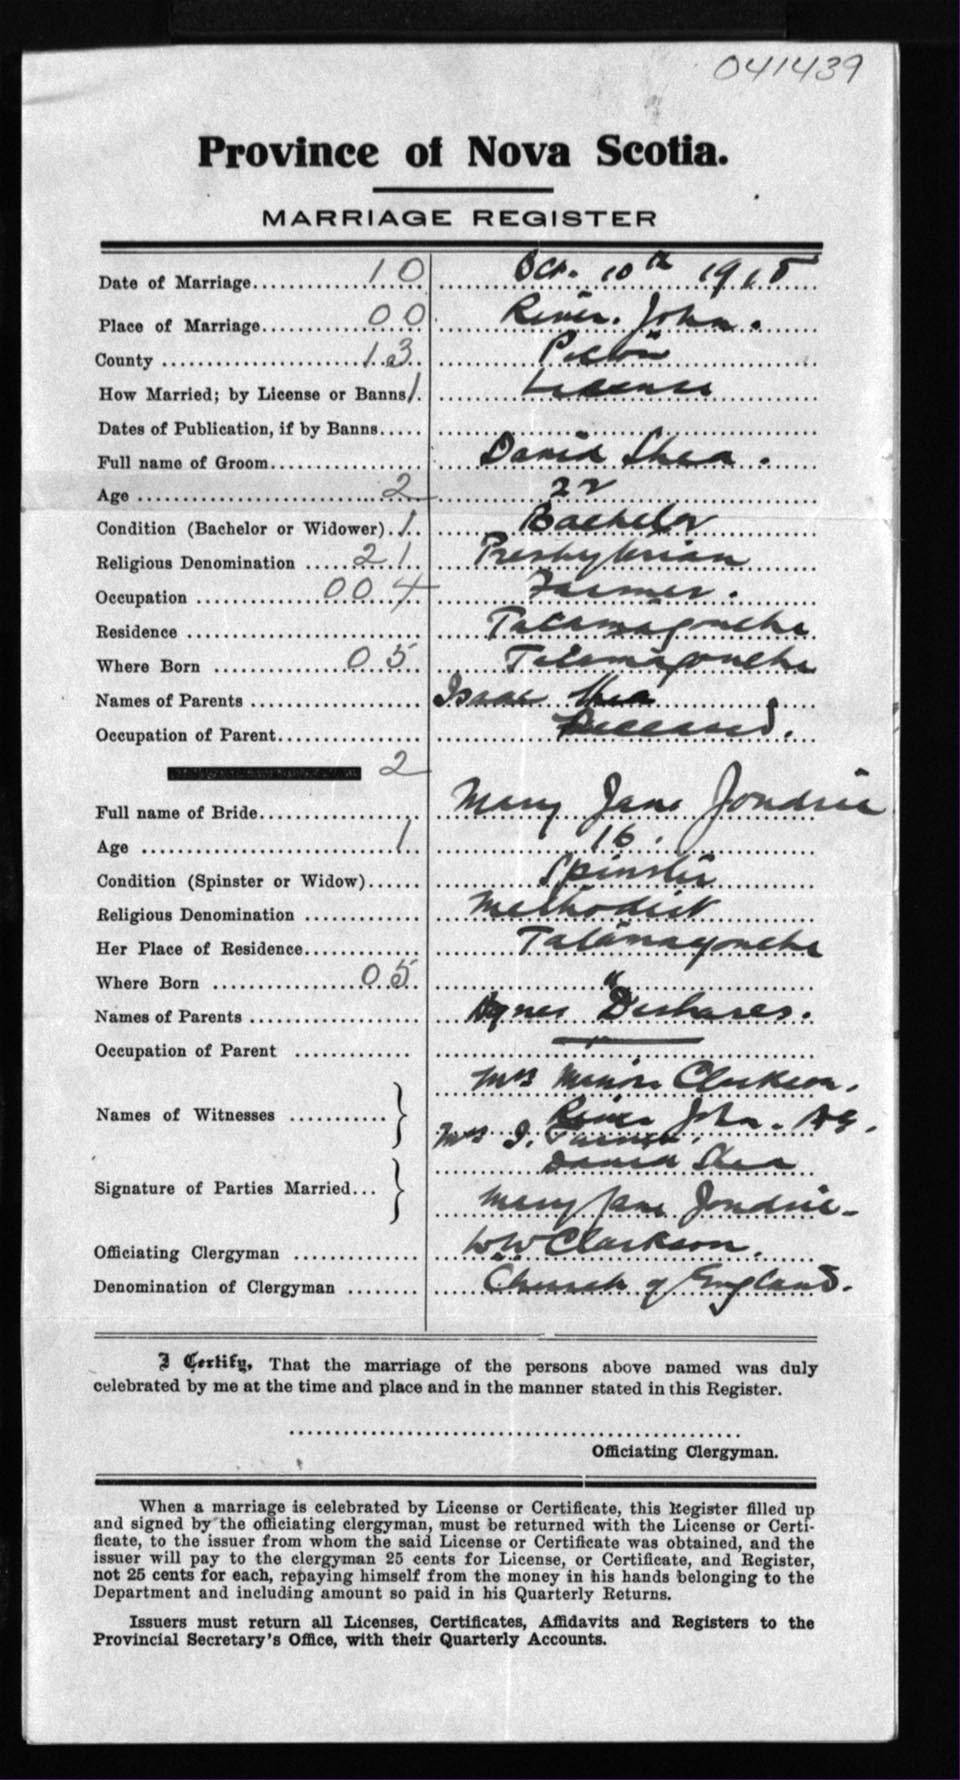 041439
Province of Nova Scotia.
MARRIAGE REGISTER
Date of Marriage 10 Oct. 10th 1915
Place of Marriage 00 River John.
County 13 Pictou
How Married; by License or Banns 1 License
Dates of Publication, if by Banns
Full name of Groom David Shea.
Age 2 22
Condition (Bachelor or Widower) 1 Bachelor
Religious Denomination 21 Presbyterian
Occupation 004 Farmer.
Residence Tatamagouche
Where Born 05 Tatamagouche
Names of Parents Isaac Shea
Occupation of Parent Deceased.
2
Full name of Bride Mary Jane Jondrie
Age 1 16.
Condition (Spinster or Widow) Spinster
Religious Denomination Methodist
Her Place of Residence Tatamagouche
Where Born 05 "
Names of Parents Agnes
Occupation of Parent
Mrs Clarkson.
Names of Witnesses River John. N.S.
Mrs J. Turner.
David Shea
Signature of Parties Married
Mary Jane Jondrie
Officiating Clergyman WW Clarkson.
Denomination of Clergyman Church of England.
I Certify, That the marriage of the persons above named was duly
celebrated by me at the time and place and in the manner stated in this Register.
Officiating Clergyman.
When a marriage is celebrated by License or Certificate, this Register filled up
and signed by the officiating clergyman, must be returned with the License or Certi-
ficate, to the issuer from whom the said License or Certificate was obtained, and the
issuer will pay to the clergyman 25 cents for License, or Certificate, and Register,
not 25 cents for each, repaying himself from the money in his hands belonging to the
Department and including amount so paid in his Quarterly Returns.
Issuers must return all Licenses, Certificates, Affidavits and Registers to the
Provincial Secretary's Office, with their Quarterly Accounts.